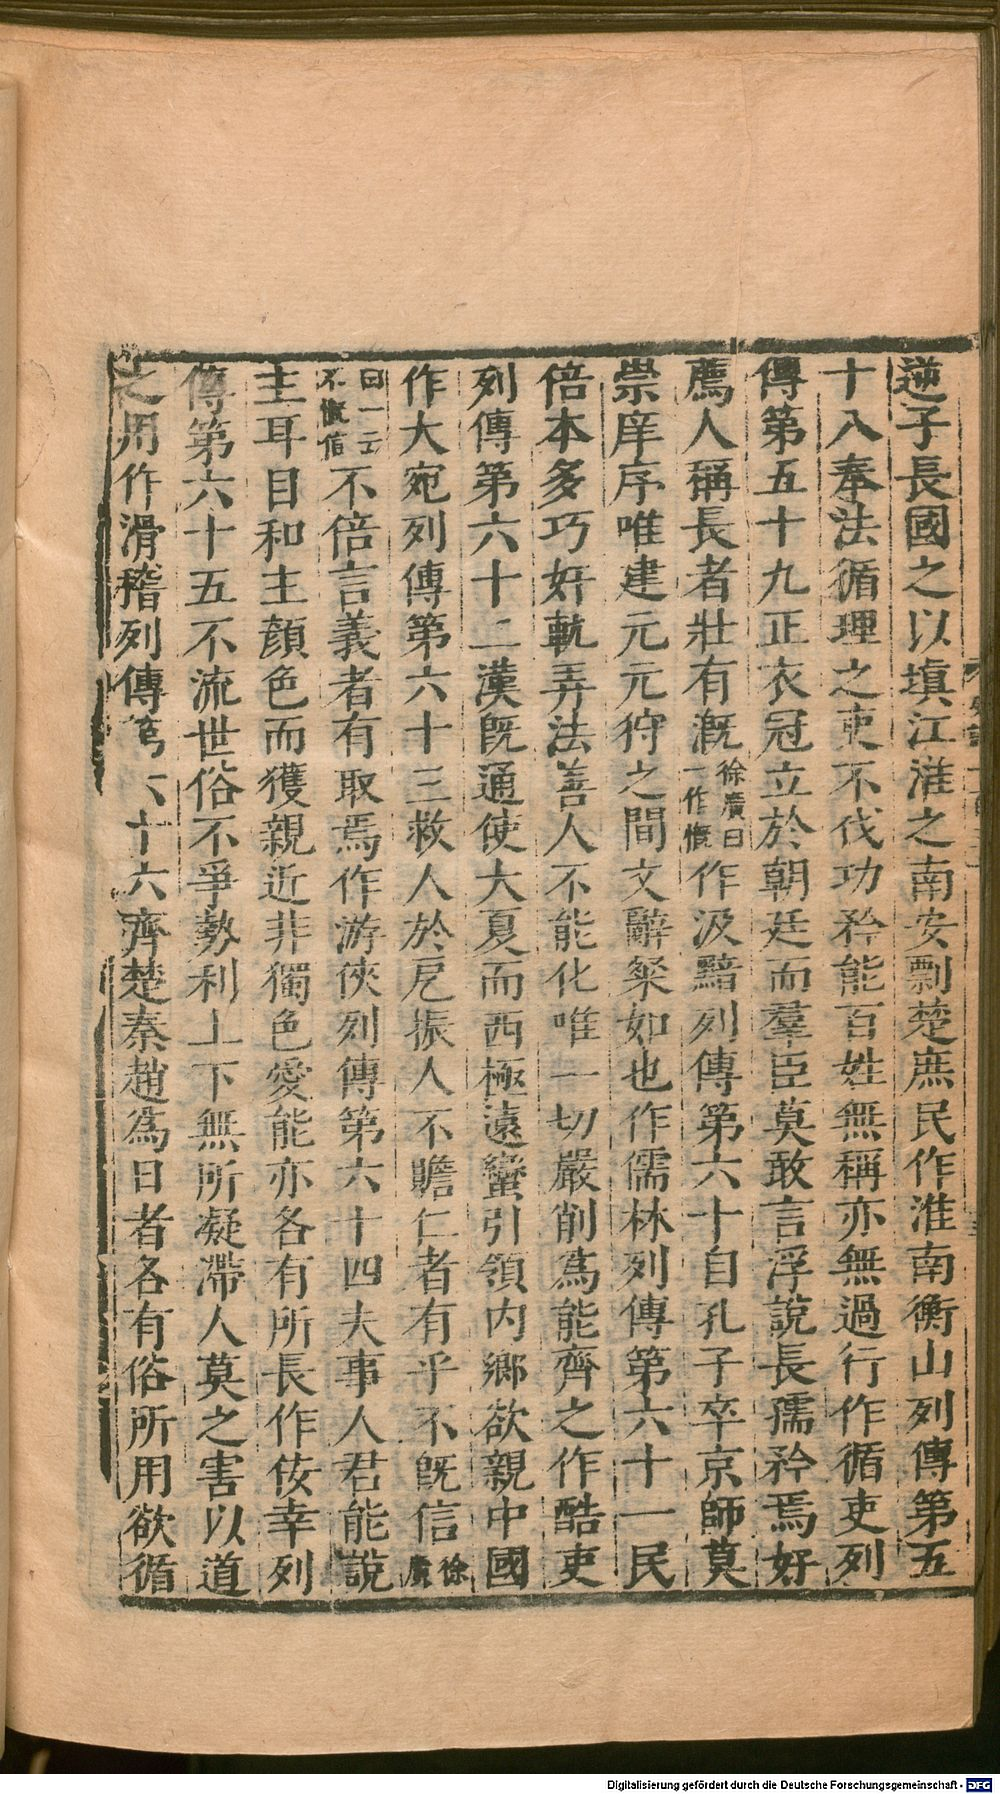 逆子長國之以塡江淮之南安剽楚庶民作淮南衡山列傳第五
十八奉法循理之吏不伐功矜能百姓無稱亦無過行作循吏列
傳第五十九正衣冠立於朝廷而羣臣莫敢言浮說長孺矜焉好
薦人稱長者壯有漑徐廣曰一作慨作汲黯列傳第六十自孔子卒京師莫
崇庠序唯建元元狩之間文辭粲如也作儒林列傳第六十一民
倍本多巧奸軌弄法善人不能化唯一切嚴削爲能齊之作酷吏
列傳第六十二漢旣通使大夏而西極遠蠻引領內鄉欲親中國
作大宛列傳第六十三救人於戹振人不贍仁者有乎不旣信徐廣
曰一云不慨信不倍言義者有取焉作游俠列傳第六十四夫事人君能說
主耳目和主顏色而獲親近非獨色愛能亦各有所長作佞幸列
傳第六十五不流世俗不爭勢利上下無所凝滯人莫之害以道
之用作滑稽列傳第六十六齊楚秦趙爲日者各有俗所用欲循
Digitalisierung gefördert durch die Deutsche Forschungsgemeinschaft - DFG